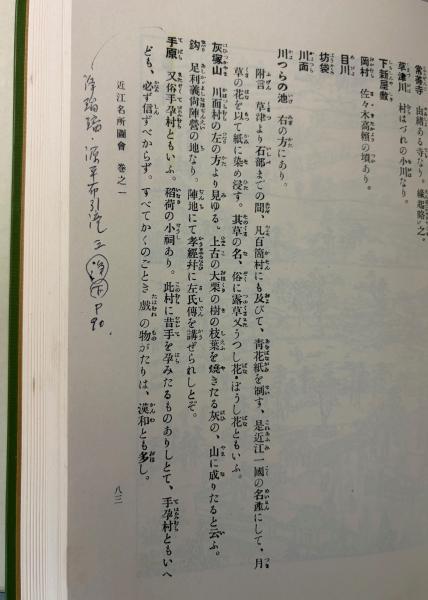 常善寺 由緒ある寺なり。縁起略之。
草津川 村はづれの小川なり。
下新屋敷
岡村 佐々木高頼の墳あり。
目川
坊袋
川面
川つらの池 右の方にあり。
附言 草津より石部までの間、凡百箇村にも及びて、青花紙を制す、是近江一國の名產にして、月
草の花を以て紙に染め浸す。其草の名、俗に露草又うつし花・ぼうし花ともいふ。
灰塚山 川面村の左の方より見ゆる。上古の大栗の樹の枝葉を燒きたる灰の、山に成りたると云ふ。
鈎 足利義尙陣營の地なり。陣地にて孝經幷に左氏傳を講ぜられしとぞ。
手原 又俗手孕村ともいふ。稻荷の小祠あり。此村に昔手を孕みたるものありしとて、手孕村ともいへ
ども、必ず信ずべからず。すべてかくのごとき戲の物がたりは、漢和とも多し。
近江名所圖會 卷之一
八三
淨瑠璃 源平布引滝 三
P 90.